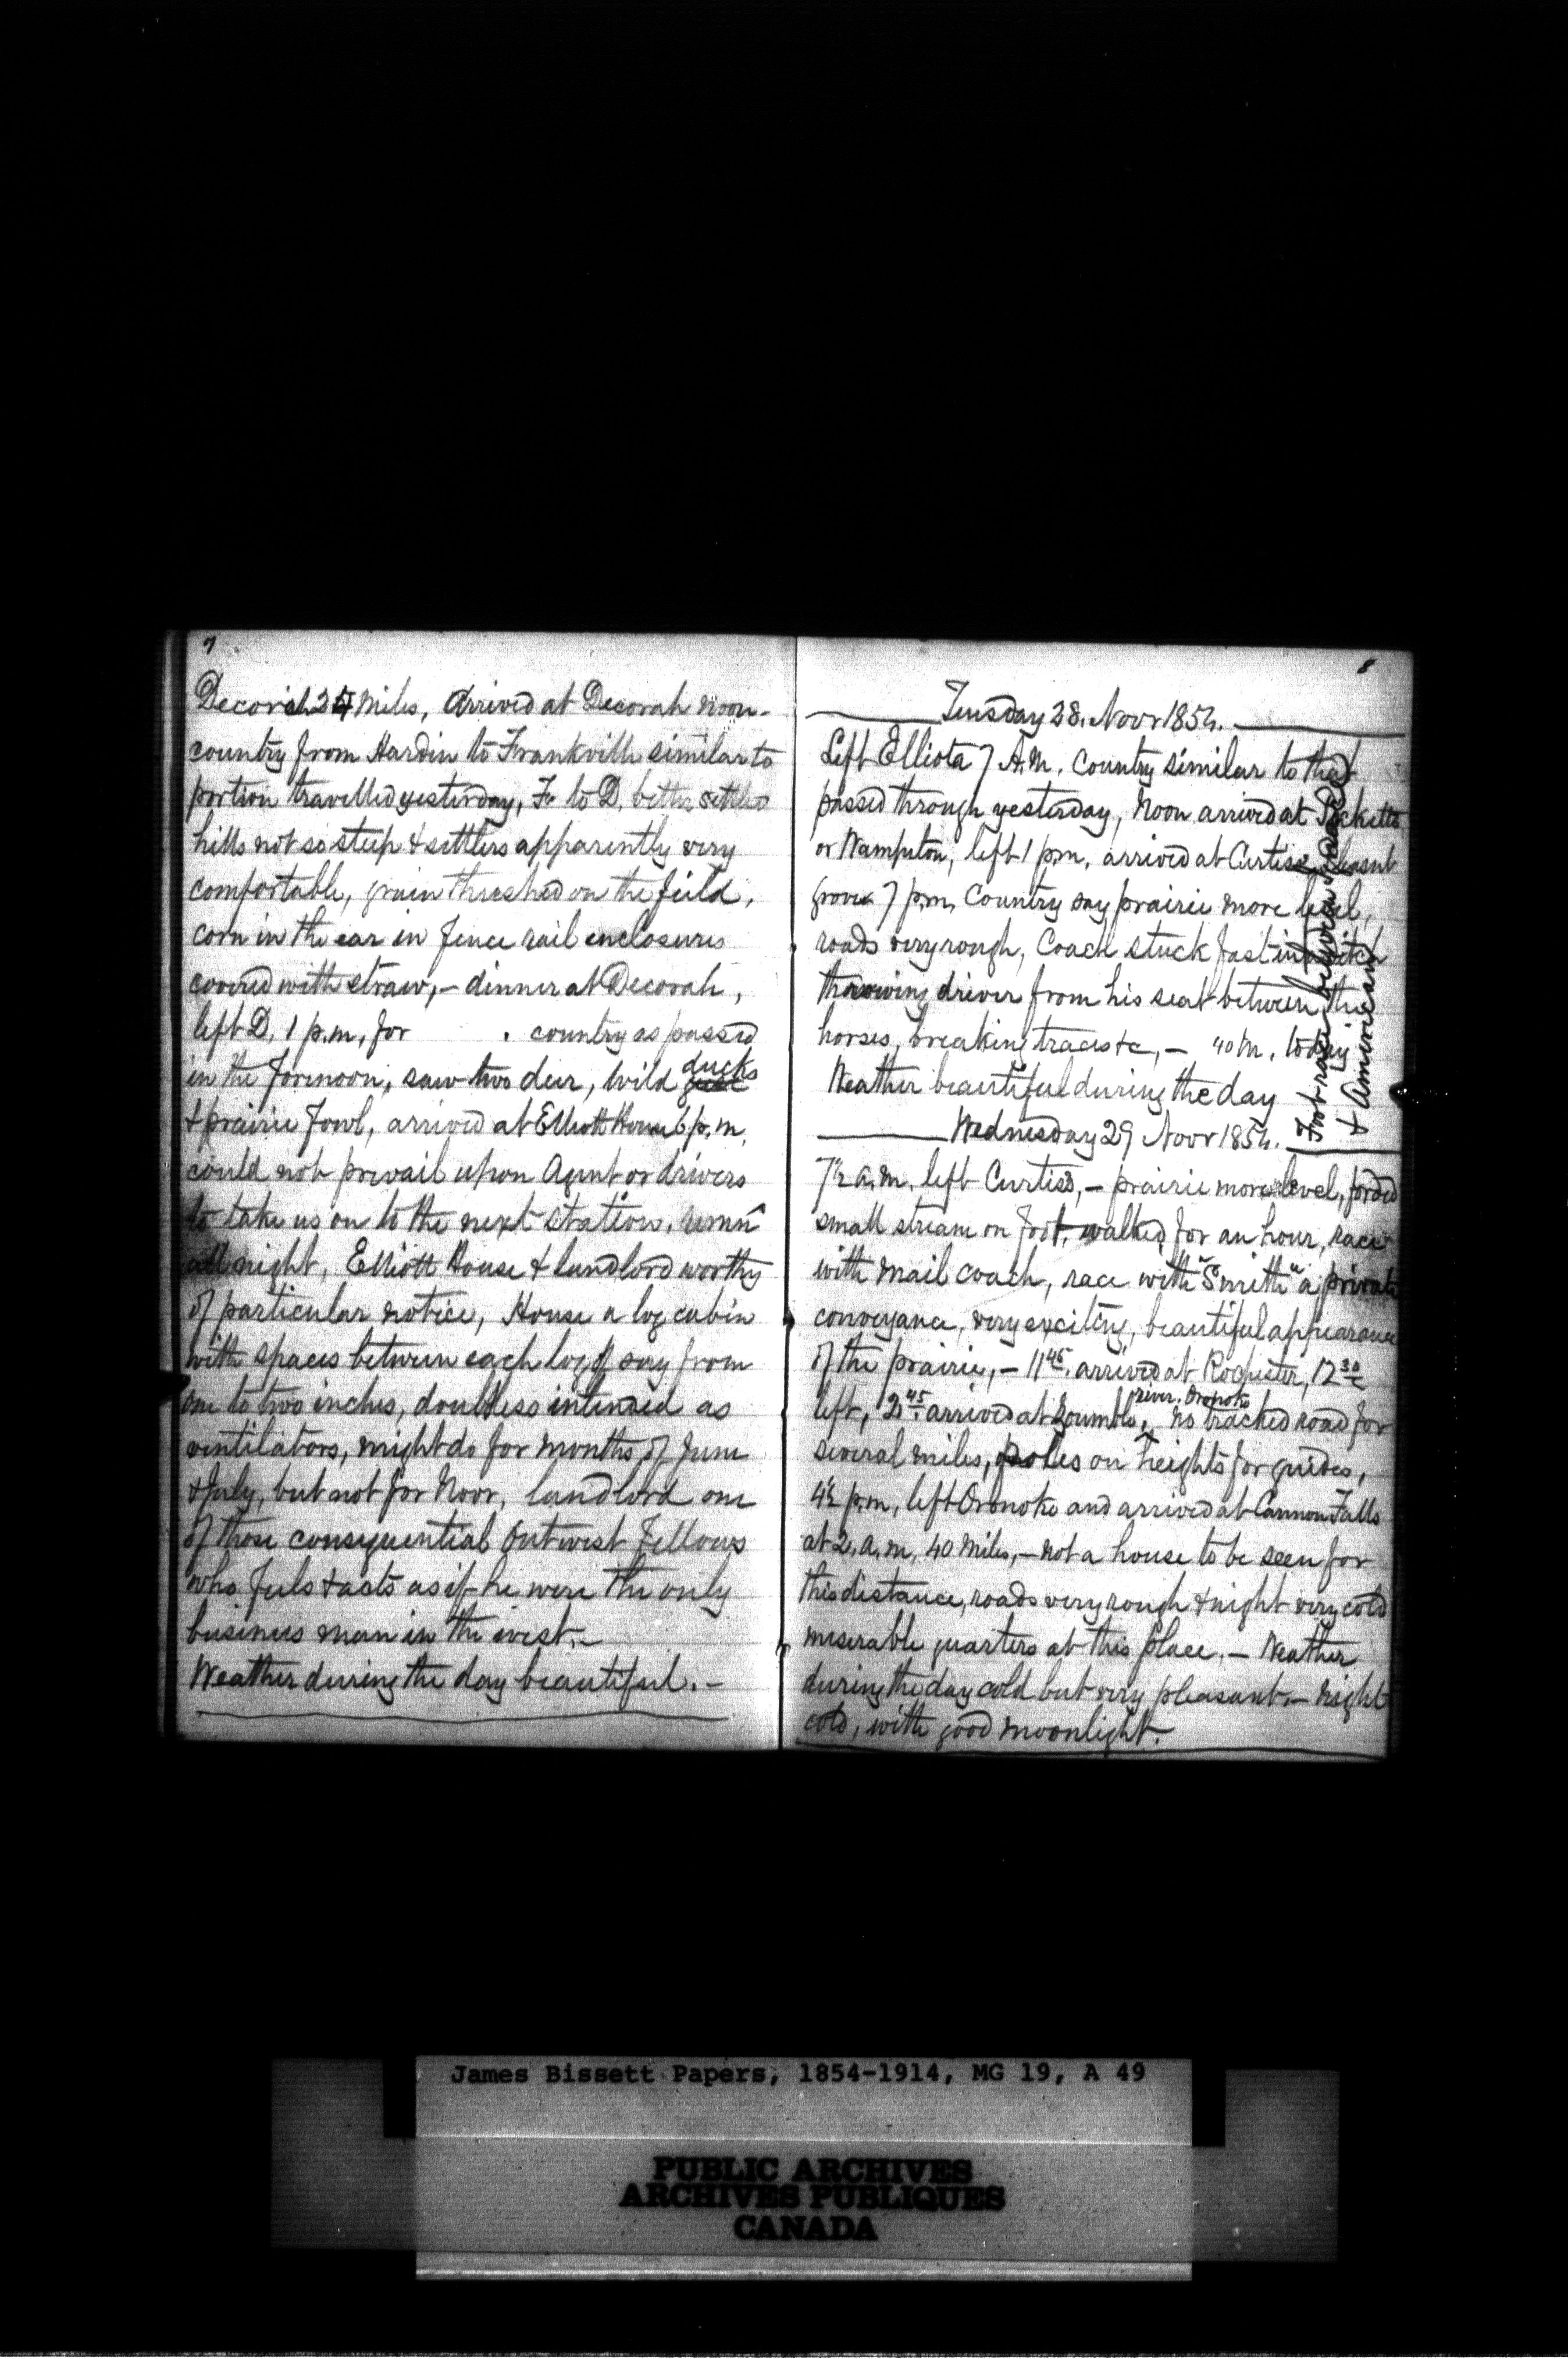 7
Decorah 24 miles, Arrived at Decorah noon -
country from Hardin to Frankville similar to
portion travelled yesterday, F. to D. better settled
hills not so steep & settlers apparently very
comfortable, grain threshed on the field,
corn in the ear in fence rail enclosures
covered with straw, - dinner at Decorah,
left D. 1 p.m, for . country as passed
in the forenoon, saw two deer, wild ducks
& prairie fowl, arrived at Elliott House 6 p.m.
could not prevail upon Agent or drivers
to take us on to the next station, remn
all night, Elliott House & landlord worthy
of particular notice, House a log cabin
with spaces between each log of say from
one to two inches, doubtless intended as
ventilators, might do for months of June
& July, but not for Novr, landlord one
of those consequential Out west Fellows
who feels & acts as if he were the only
business man in the west. -
Weather during the day beautiful. -
8
Tuesday 28. Novr 1854.
Left Elliota 7 A.M. Country similar to that
passed through yesterday, Noon arrived at
or left 1 p.m. arrived at Curtiss
Grove 7 p.m, Country say prairie more level,
roads very rough, Coach stuck fast in a ditch
throwing driver from his seat between the
horses, breaking traces &c, - 40 M. today
Weather beautiful during the day
Foot race between
& American
Wednesday 29 Novr 1854.
7½ a.m. left Curtiss, - prairie more level, forded
small stream on foot, walked for an hour, race
with mail coach, race with "Smith" a private
conveyance, very exciting, beautiful appearance
of the prairie, - 11 45. arrived at Rochester, 12 30
left, 2 45. arrived at Zumbro, river. Oronoko No tracked road for
several miles, poles on heights for guides,
4½ p.m, left Oronoko and arrived at Cannon Falls
at 2. a.m, 40 miles, - not a house to be seen for
this distance, roads very rough & night very cold
miserable quarters at this place. - Weather
during the day cold but very pleasant. - Night
cold, with good moonlight.
James Bissett Papers, 1854-1914, MG 19, A 49
PUBLIC ARCHIVES
ARCHIVES PUBLIQUES
CANADA